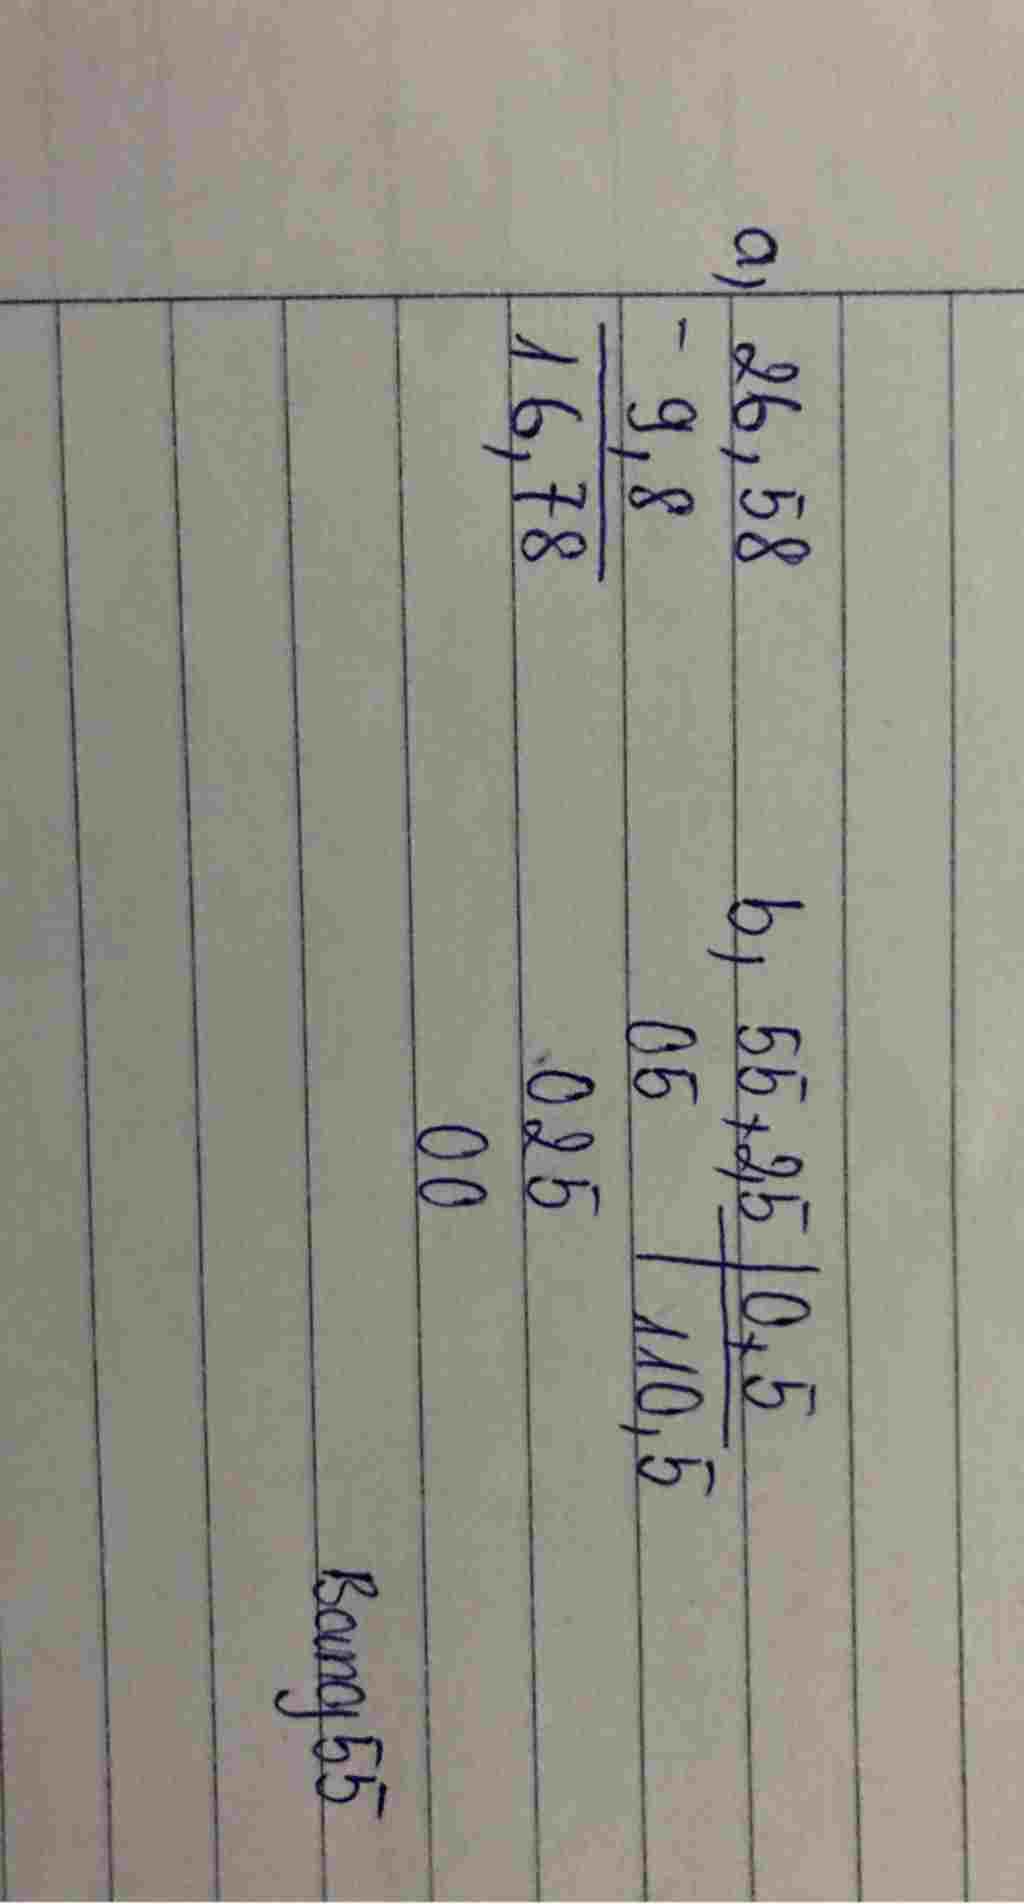 a, 26,58 b, 55,2,5 0,5
- 9,8 05 110,5
16,78 025
00
Bang55